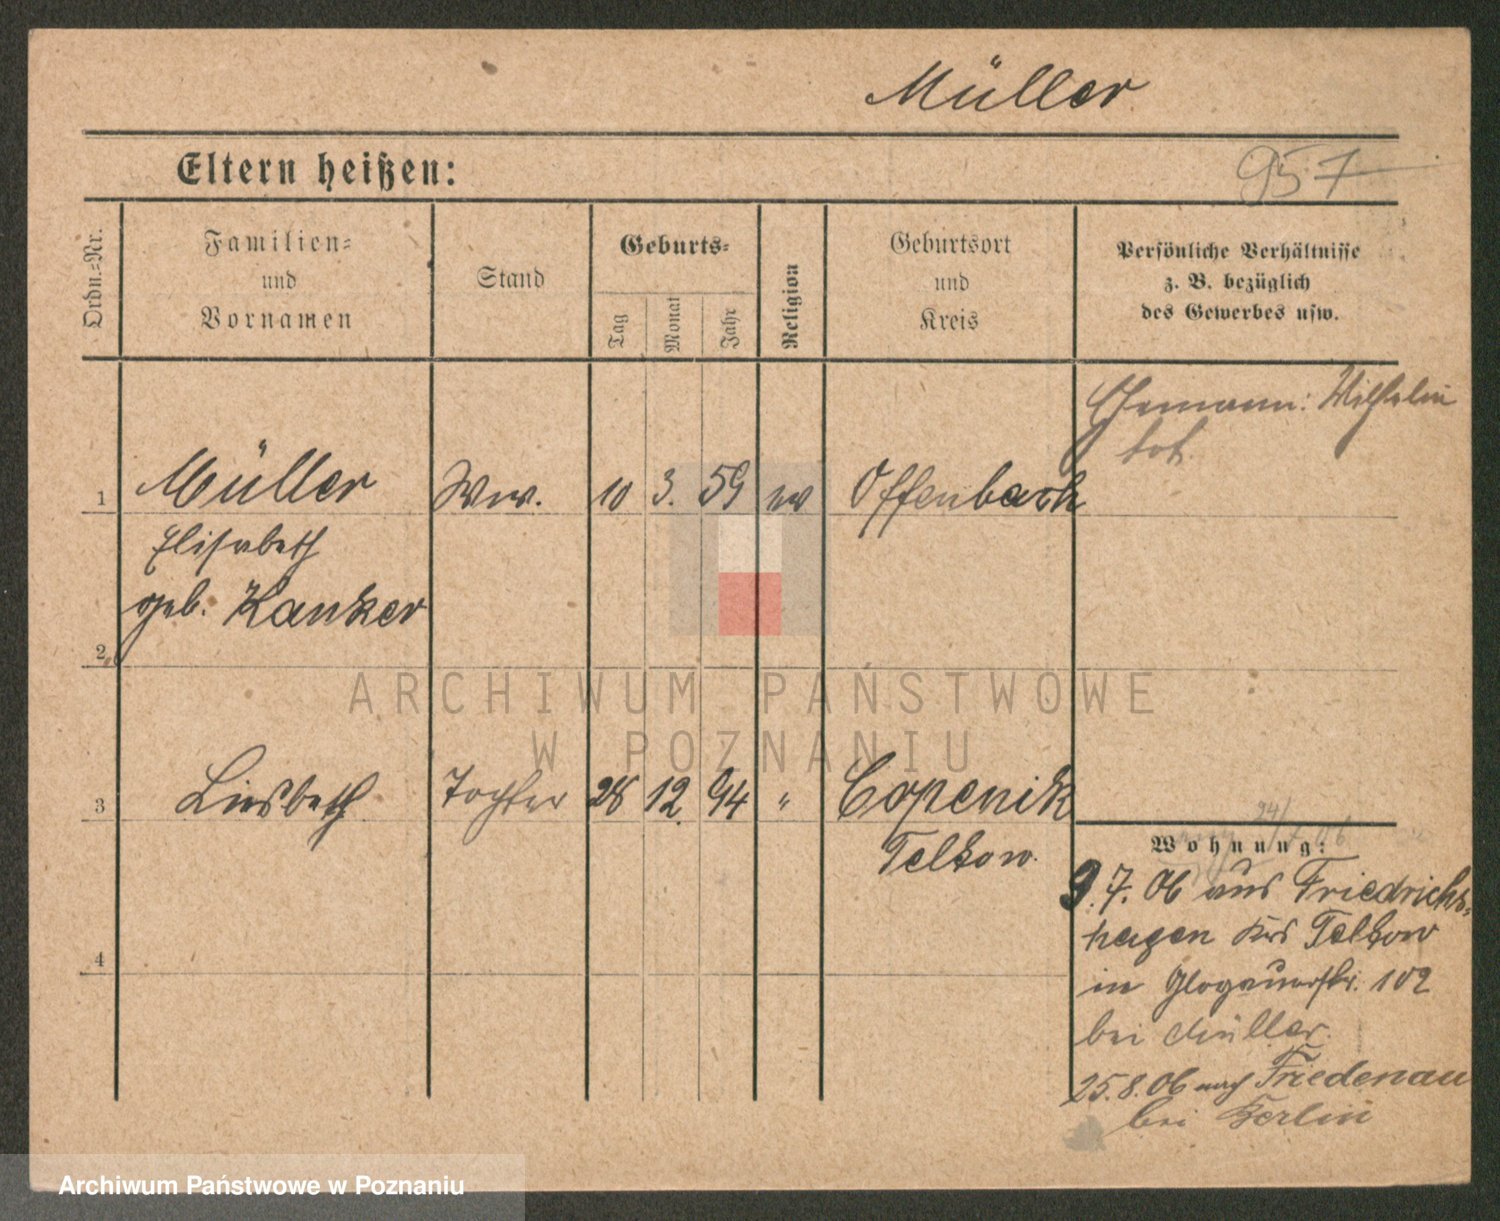 Müller
Eltern heißen:
957
Ordn.=Nr.
Familien=
und
Vornamen
Stand
Geburts=
Tag
Monat
Jahr
Religion
Geburtsort
und
Kreis
Persönliche Verhältnisse
z. B. bezüglich
des Gewerbes usw.
Ehemann: Wilhelm
tot.
1 Müller Ww. 10 3. 59 ev Offenbach
Elisabeth
geb. Kanker
2
3 Liesbeth Tochter 28 12. 94 " Copenik
Telkow.
24/7 06
Wohnung:
9. 7. 06 aus Friedrichs=
hagen Krs Telkow
4
in Glogauerstr. 102
bei Müller.
25. 8. 06 nach Friedenau
bei Berlin
ARCHIWUM PAŃSTWOWE
W POZNANIU
Archiwum Państwowe w Poznaniu